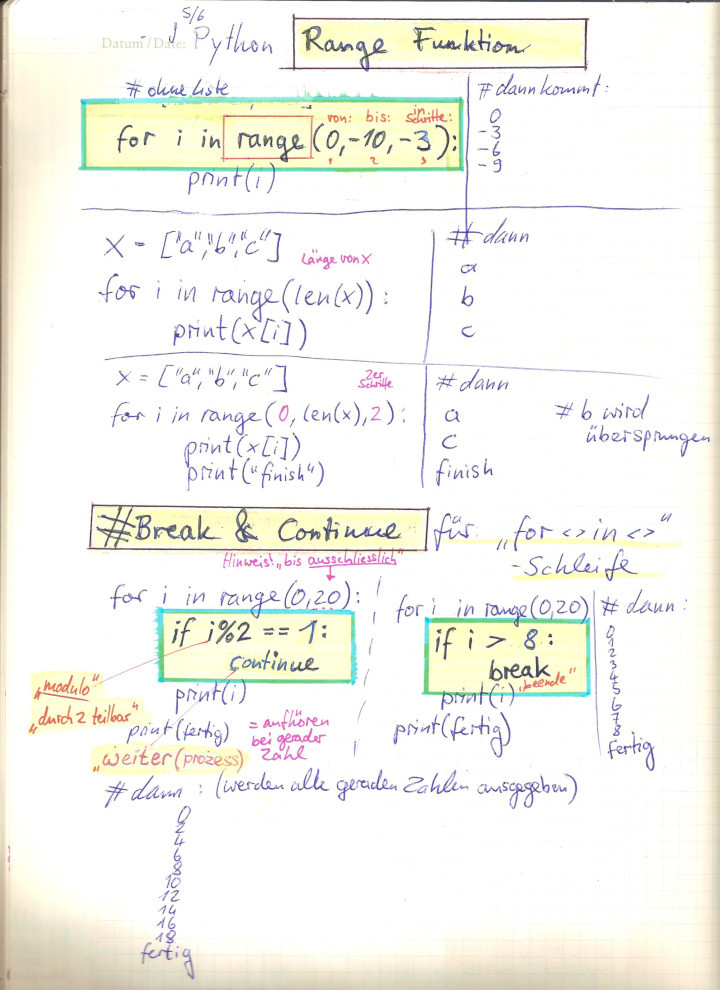 5/6
Datum / Date: Python Range Funktion
# ohne Liste
# dann kommt:
von: bis: in Schritte:
for i in range(0,-10,-3):
1 2 3
print(i)
0
-3
-6
-9
x = ["a","b","c"]
Länge von x
for i in range(len(x)):
print(x[i])
# dann
a
b
c
x = ["a","b","c"]
2er Schritte
for i in range(0, len(x), 2):
print(x[i])
print("finish")
# dann
a
c
finish
# b wird
überspringen
#Break & Continue
für „for <> in <>"
-Schleife
Hinweis! „bis ausschliesslich"
for i in range(0,20):
if i%2 == 1:
continue
„modulo"
„durch 2 teilbar"
print(i)
print(fertig)
= aufhören
bei gerader
Zahl
„weiter (prozess)
for i in range(0,20)
if i > 8:
break
„beende"
print(i)
print(fertig)
# dann:
0
1
2
3
4
5
6
7
8
fertig
# dann: (werden alle geraden Zahlen ausgegeben)
0
2
4
6
8
10
12
14
16
18
fertig